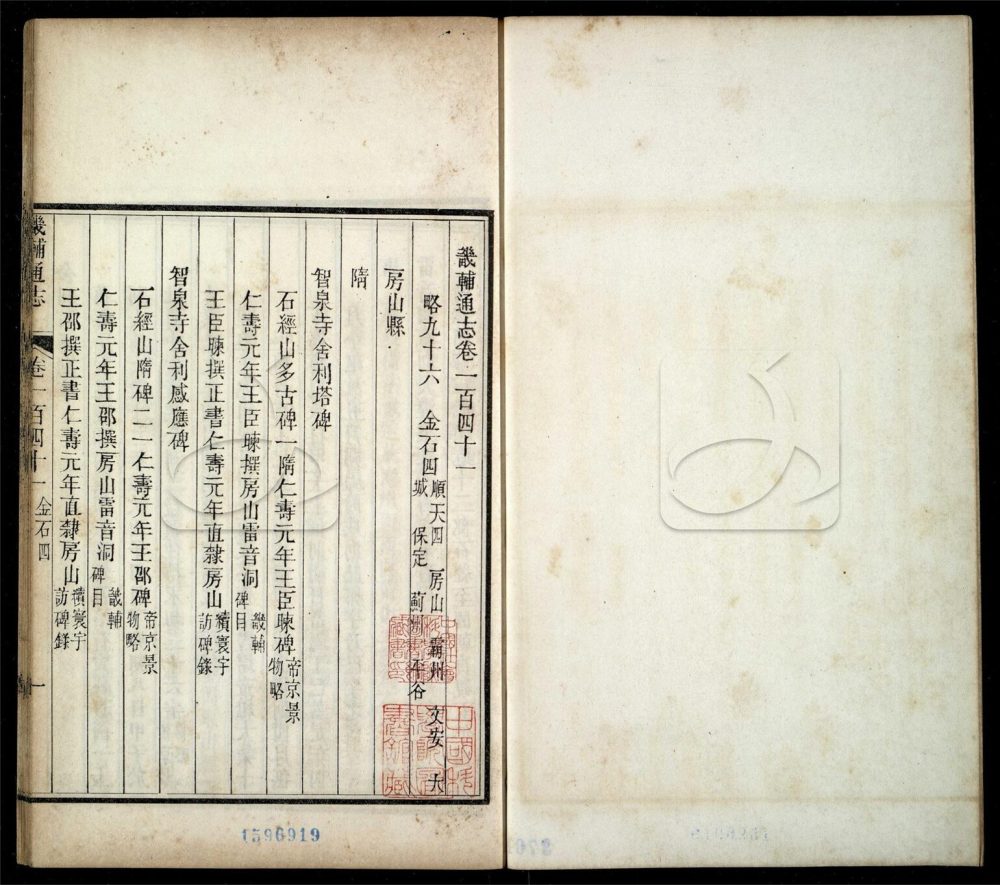 畿輔通志卷一百四十一
略九十六 金石四 順天四 房山 霸州 文安 大
城 保定 薊州 平谷
房山縣
隋
智泉寺舍利塔碑
石經山多古碑一隋仁壽元年王臣暕碑帝京景
物略
仁壽元年王臣暕撰房山雷音洞畿輔
碑目
王臣暕撰正書仁壽元年直隸房山續寰宇
訪碑錄
智泉寺舍利感應碑
石經山隋碑二一仁壽元年王邵碑帝京景
物略
仁壽元年王邵撰房山雷音洞畿輔
碑目
王邵撰正書仁壽元年直隸房山續寰宇
訪碑錄
畿輔通志 卷一百四十一 金石四 一
1596919